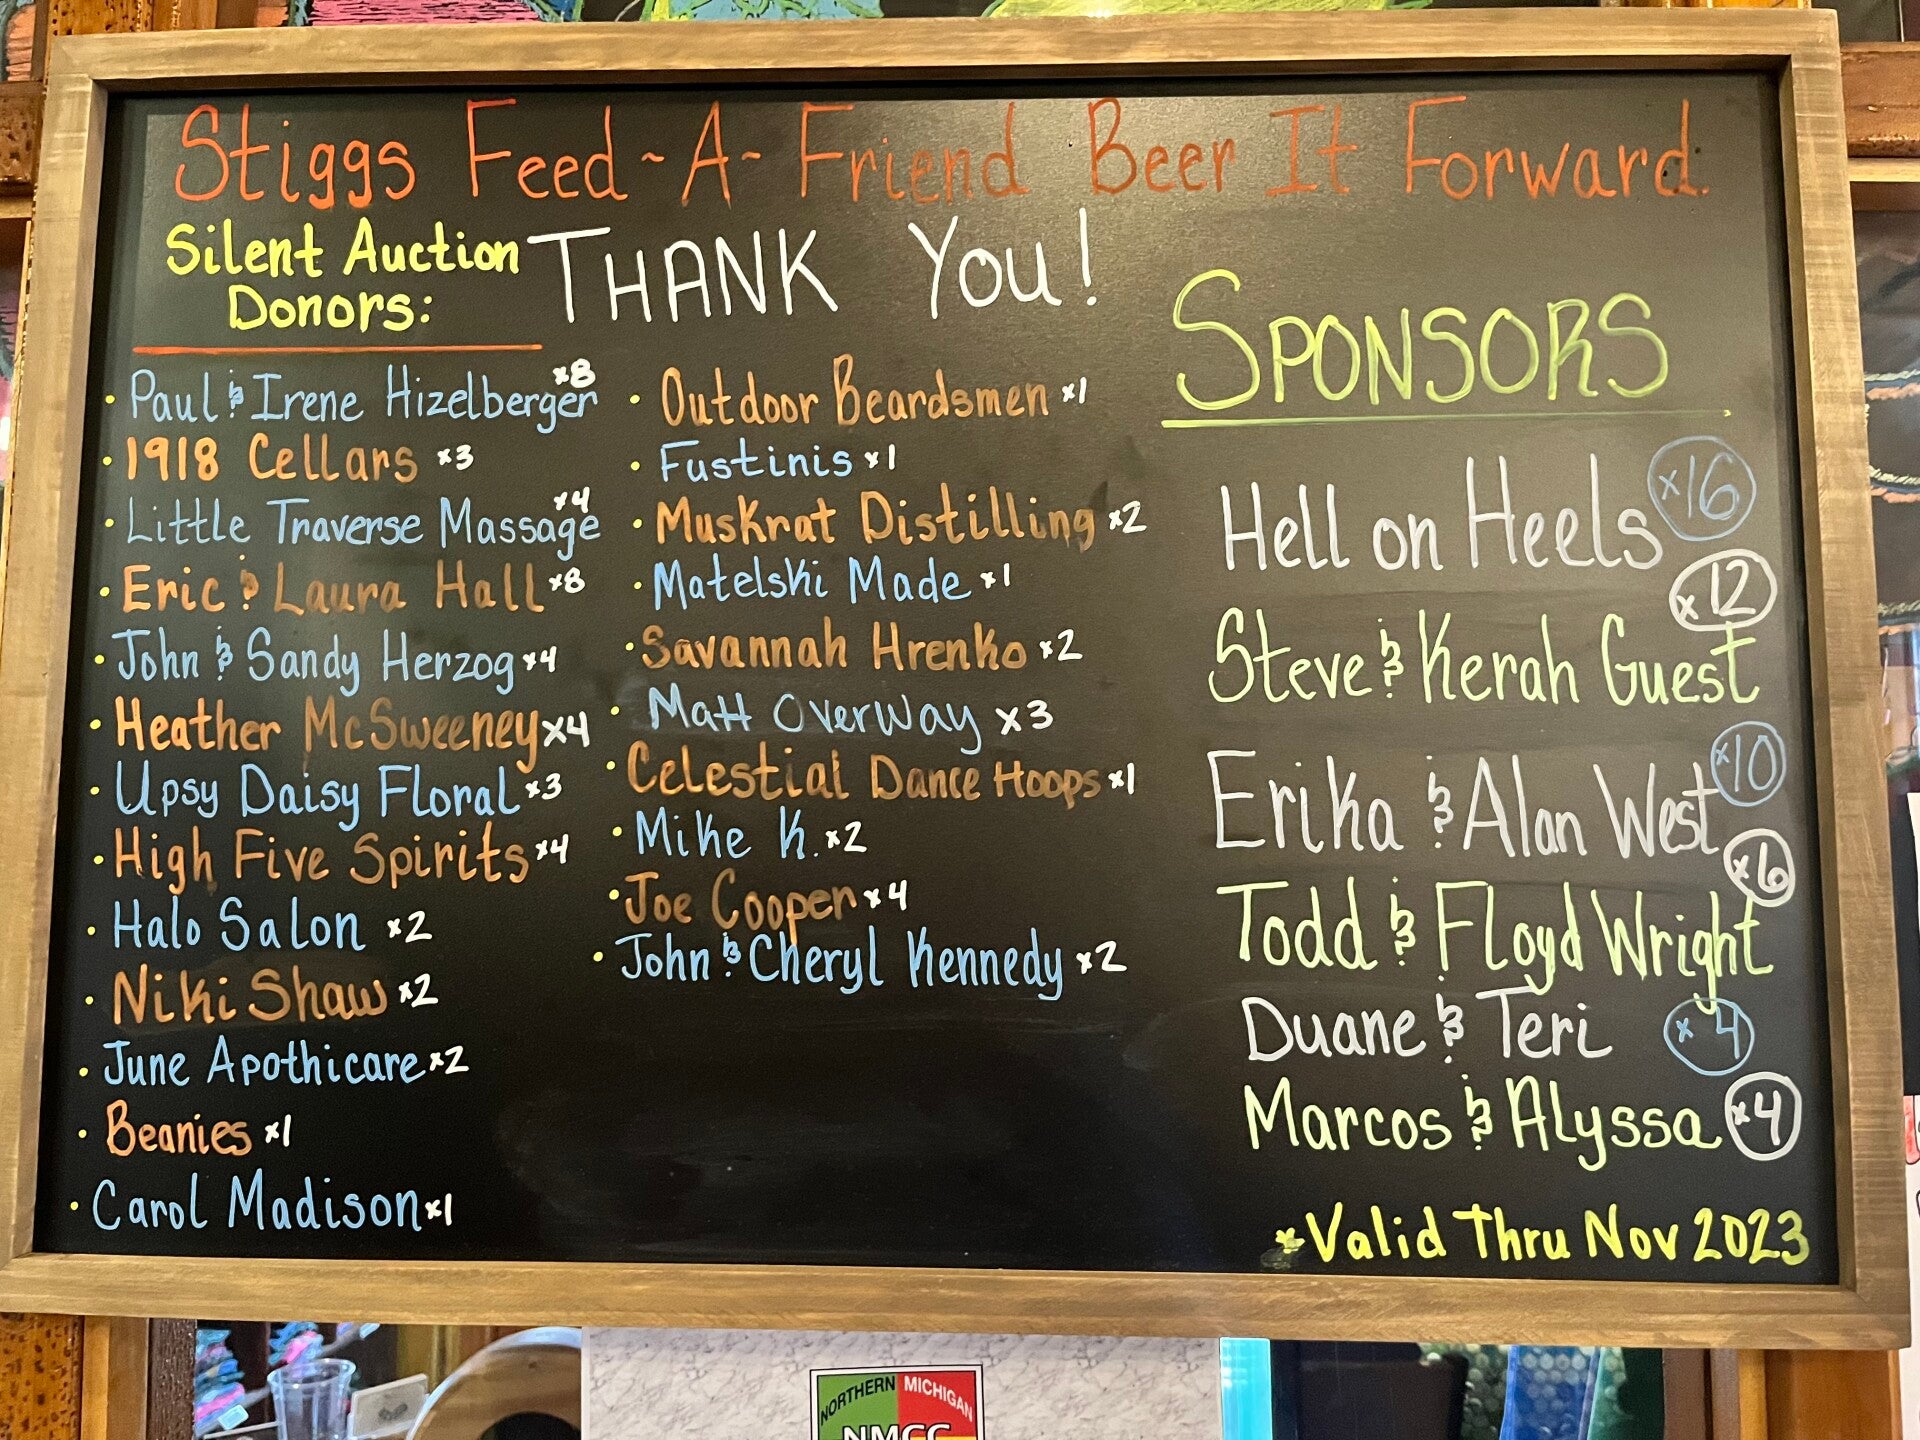 Stiggs Feed-A-Friend Beer It Forward.
Silent Auction
Donors:
THANK You!
• Paul & Irene Hizelberger x8
• 1918 Cellars x3
• Little Traverse Massage x4
• Eric & Laura Hall x8
• John & Sandy Herzog x4
• Heather McSweeney x4
• Upsy Daisy Floral x3
• High Five Spirits x4
• Halo Salon x2
• Niki Shaw x2
• June Apothicare x2
• Beanies x1
• Carol Madison x1
• Outdoor Beardsmen x1
• Fustinis x1
• Muskrat Distilling x2
• Matelski Made x1
• Savannah Hrenko x2
• Matt Overway x3
• Celestial Dance Hoops x1
• Mike K. x2
• Joe Cooper x4
• John & Cheryl Kennedy x2
SPONSORS
Hell on Heels x16
Steve & Kerah Guest x12
Erika & Alan West x10
Todd & Floyd Wright x6
Duane & Teri x4
Marcos & Alyssa x4
*Valid Thru Nov 2023
NORTHERN MICHIGAN
NMCC